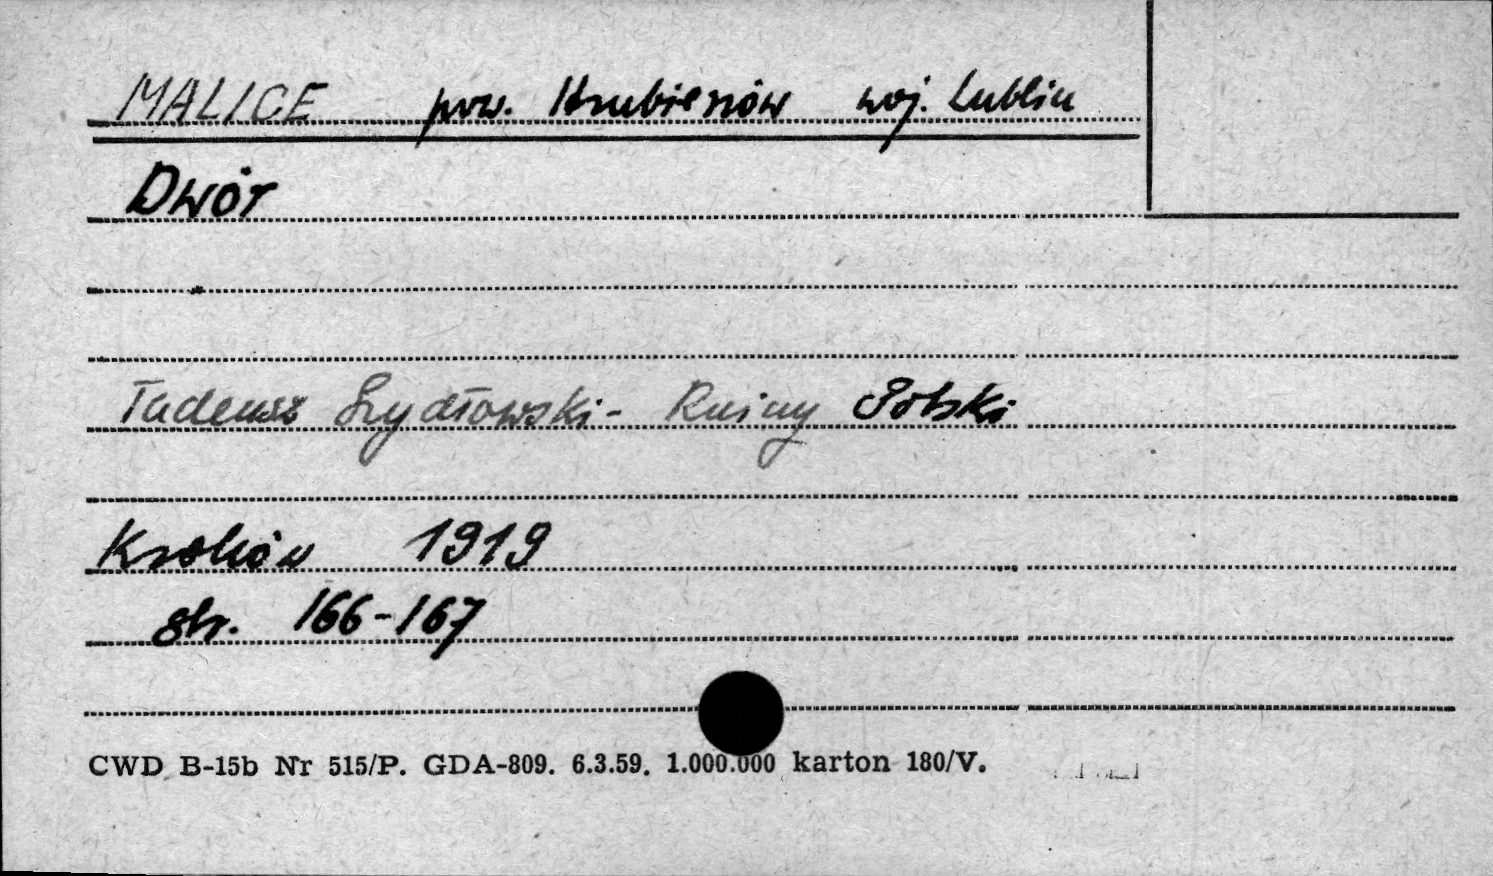 MALICE pow. Hrubieszów woj. Lublin
Dwór
Tadeusz Szydłowski - Ruiny Polski
Kraków 1919
str. 166-167
CWD B-15b Nr 515/P. GDA-809. 6.3.59. 1.000.000 karton 180/V.